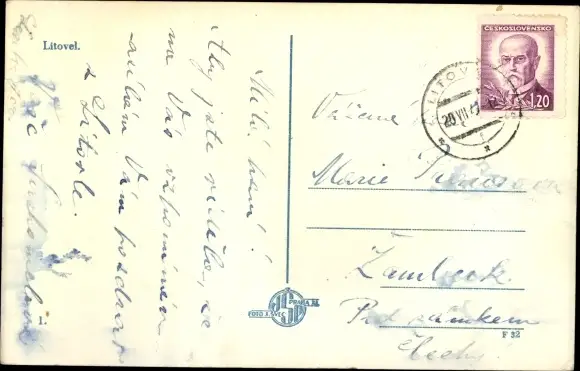 Litovel.
Milá paní!
Aby jste viděla, že
na Vás vzpomínám
zasílám Vám pozdrav
z Litovle.
1.
FOTO A. ŠVEC
PRAHA XI.
ČESKOSLOVENSKO
1.20
LITOVEL
20 VII
Vážená
Marie
Žamberk
Pod zámkem
Čechy
F 32